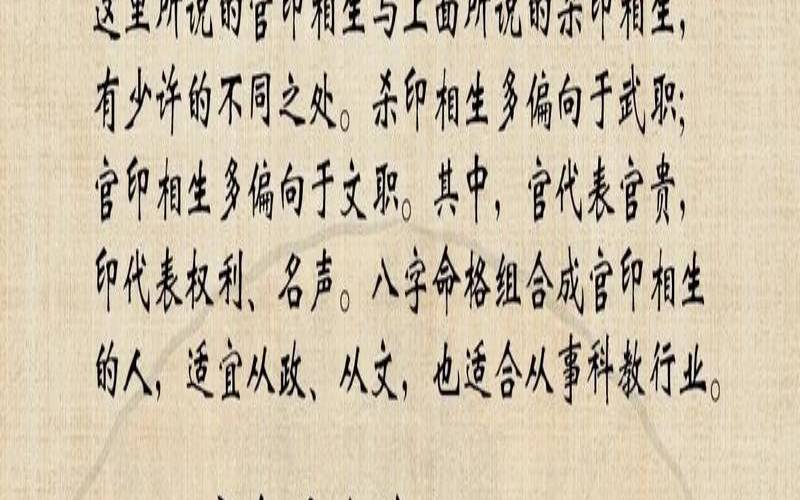 这里所说的官印相生与上面所说的杀印相生,
有少许的不同之处。杀印相生多偏向于武职;
官印相生多偏向于文职。其中,官代表官贵,
印代表权利、名声。八字命格组合成官印相生
的人,适宜从政、从文,也适合从事科教行业。